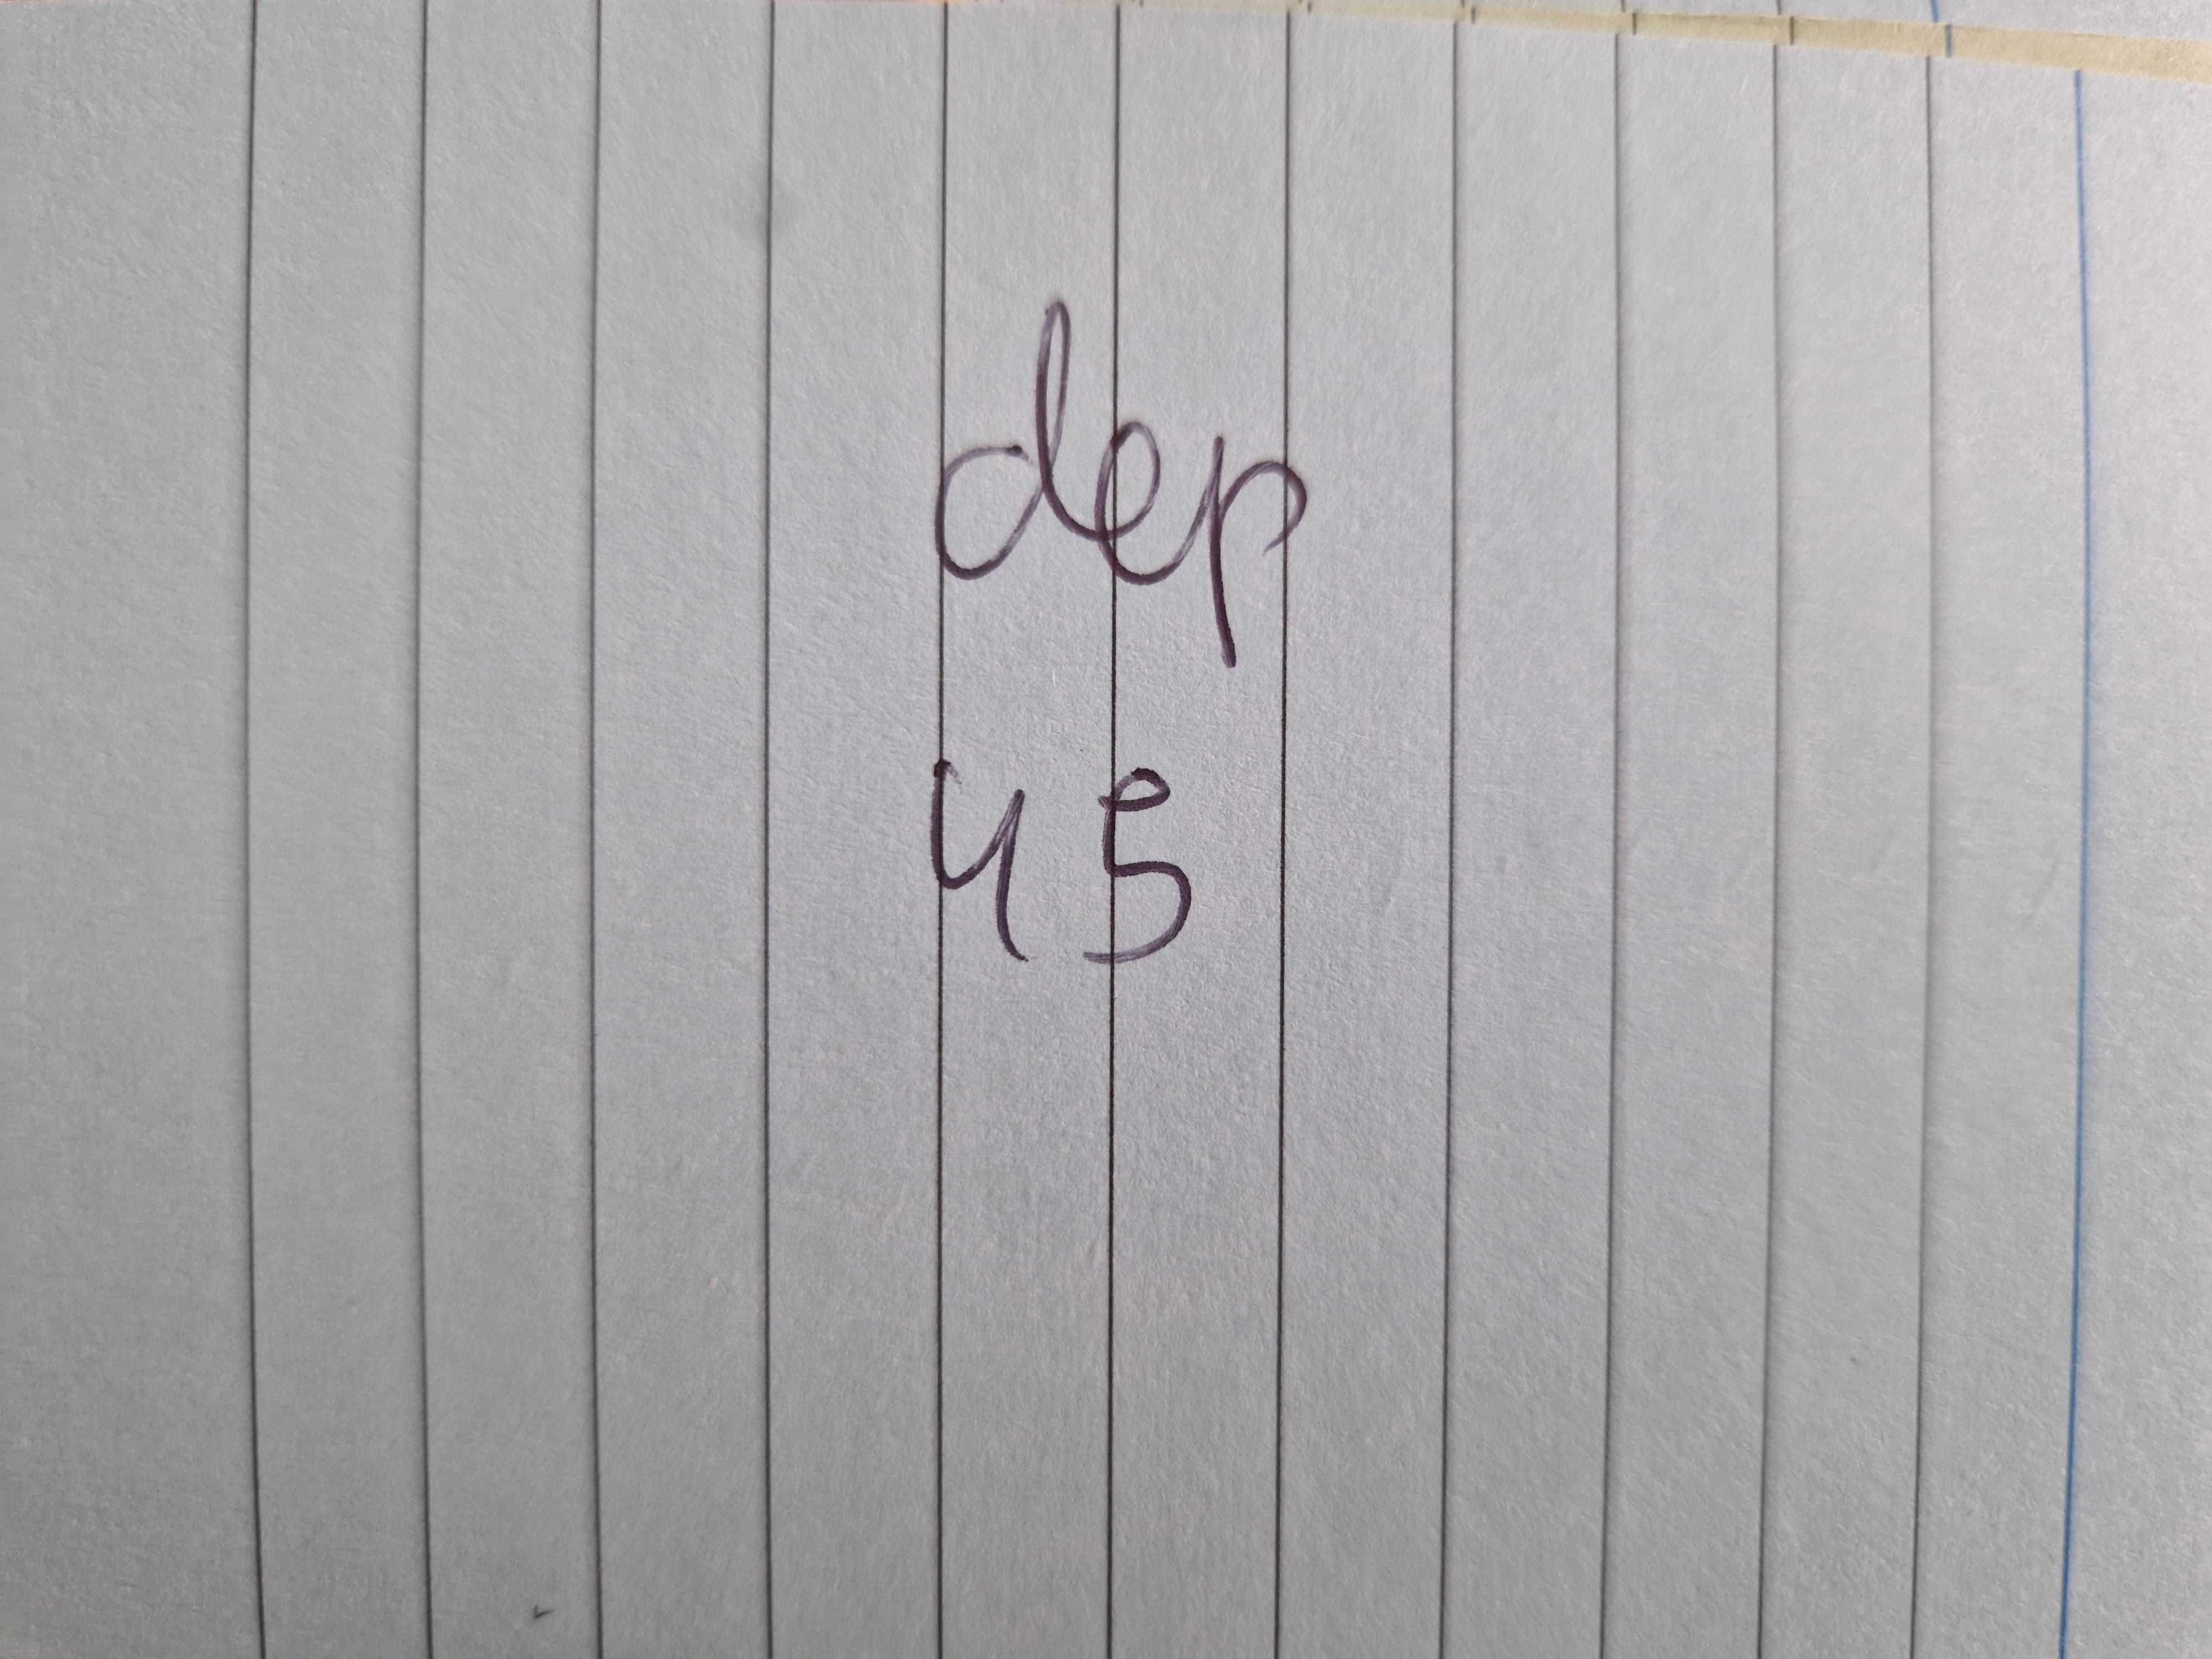 dep
45